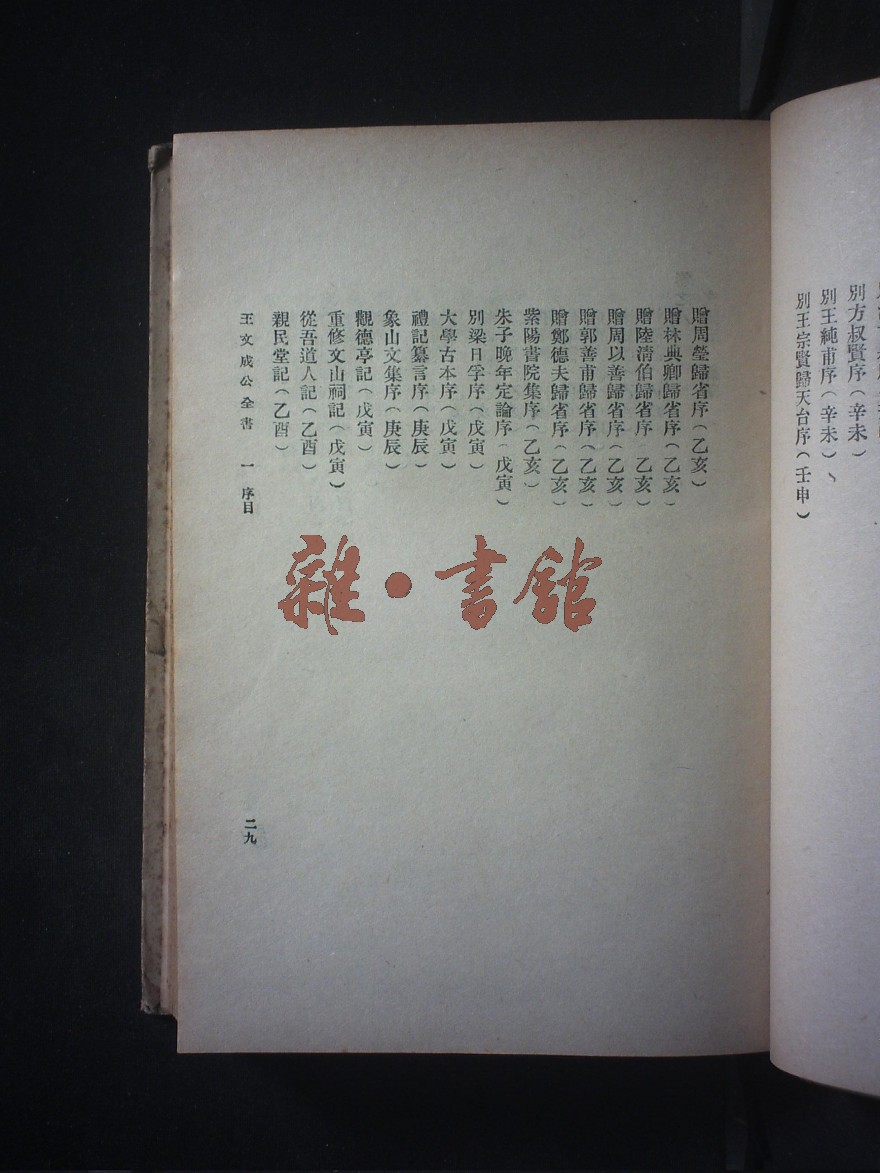 別方叔賢序(辛未)
別王純甫序(辛未)
別王宗賢歸天台序(壬申)
贈周瑩歸省序(乙亥)
贈林典卿歸省序(乙亥)
贈陸清伯歸省序(乙亥)
贈周以善歸省序(乙亥)
贈郭善甫歸省序(乙亥)
贈鄭德夫歸省序(乙亥)
紫陽書院集序(乙亥)
朱子晚年定論序(戊寅)
別梁日孚序(戊寅)
大學古本序(戊寅)
禮記纂言序(庚辰)
象山文集序(庚辰)
觀德亭記(戊寅)
重修文山祠記(戊寅)
從吾道人記(乙酉)
親民堂記(乙酉)
王文成公全書 一 序目
二九
雜·書館